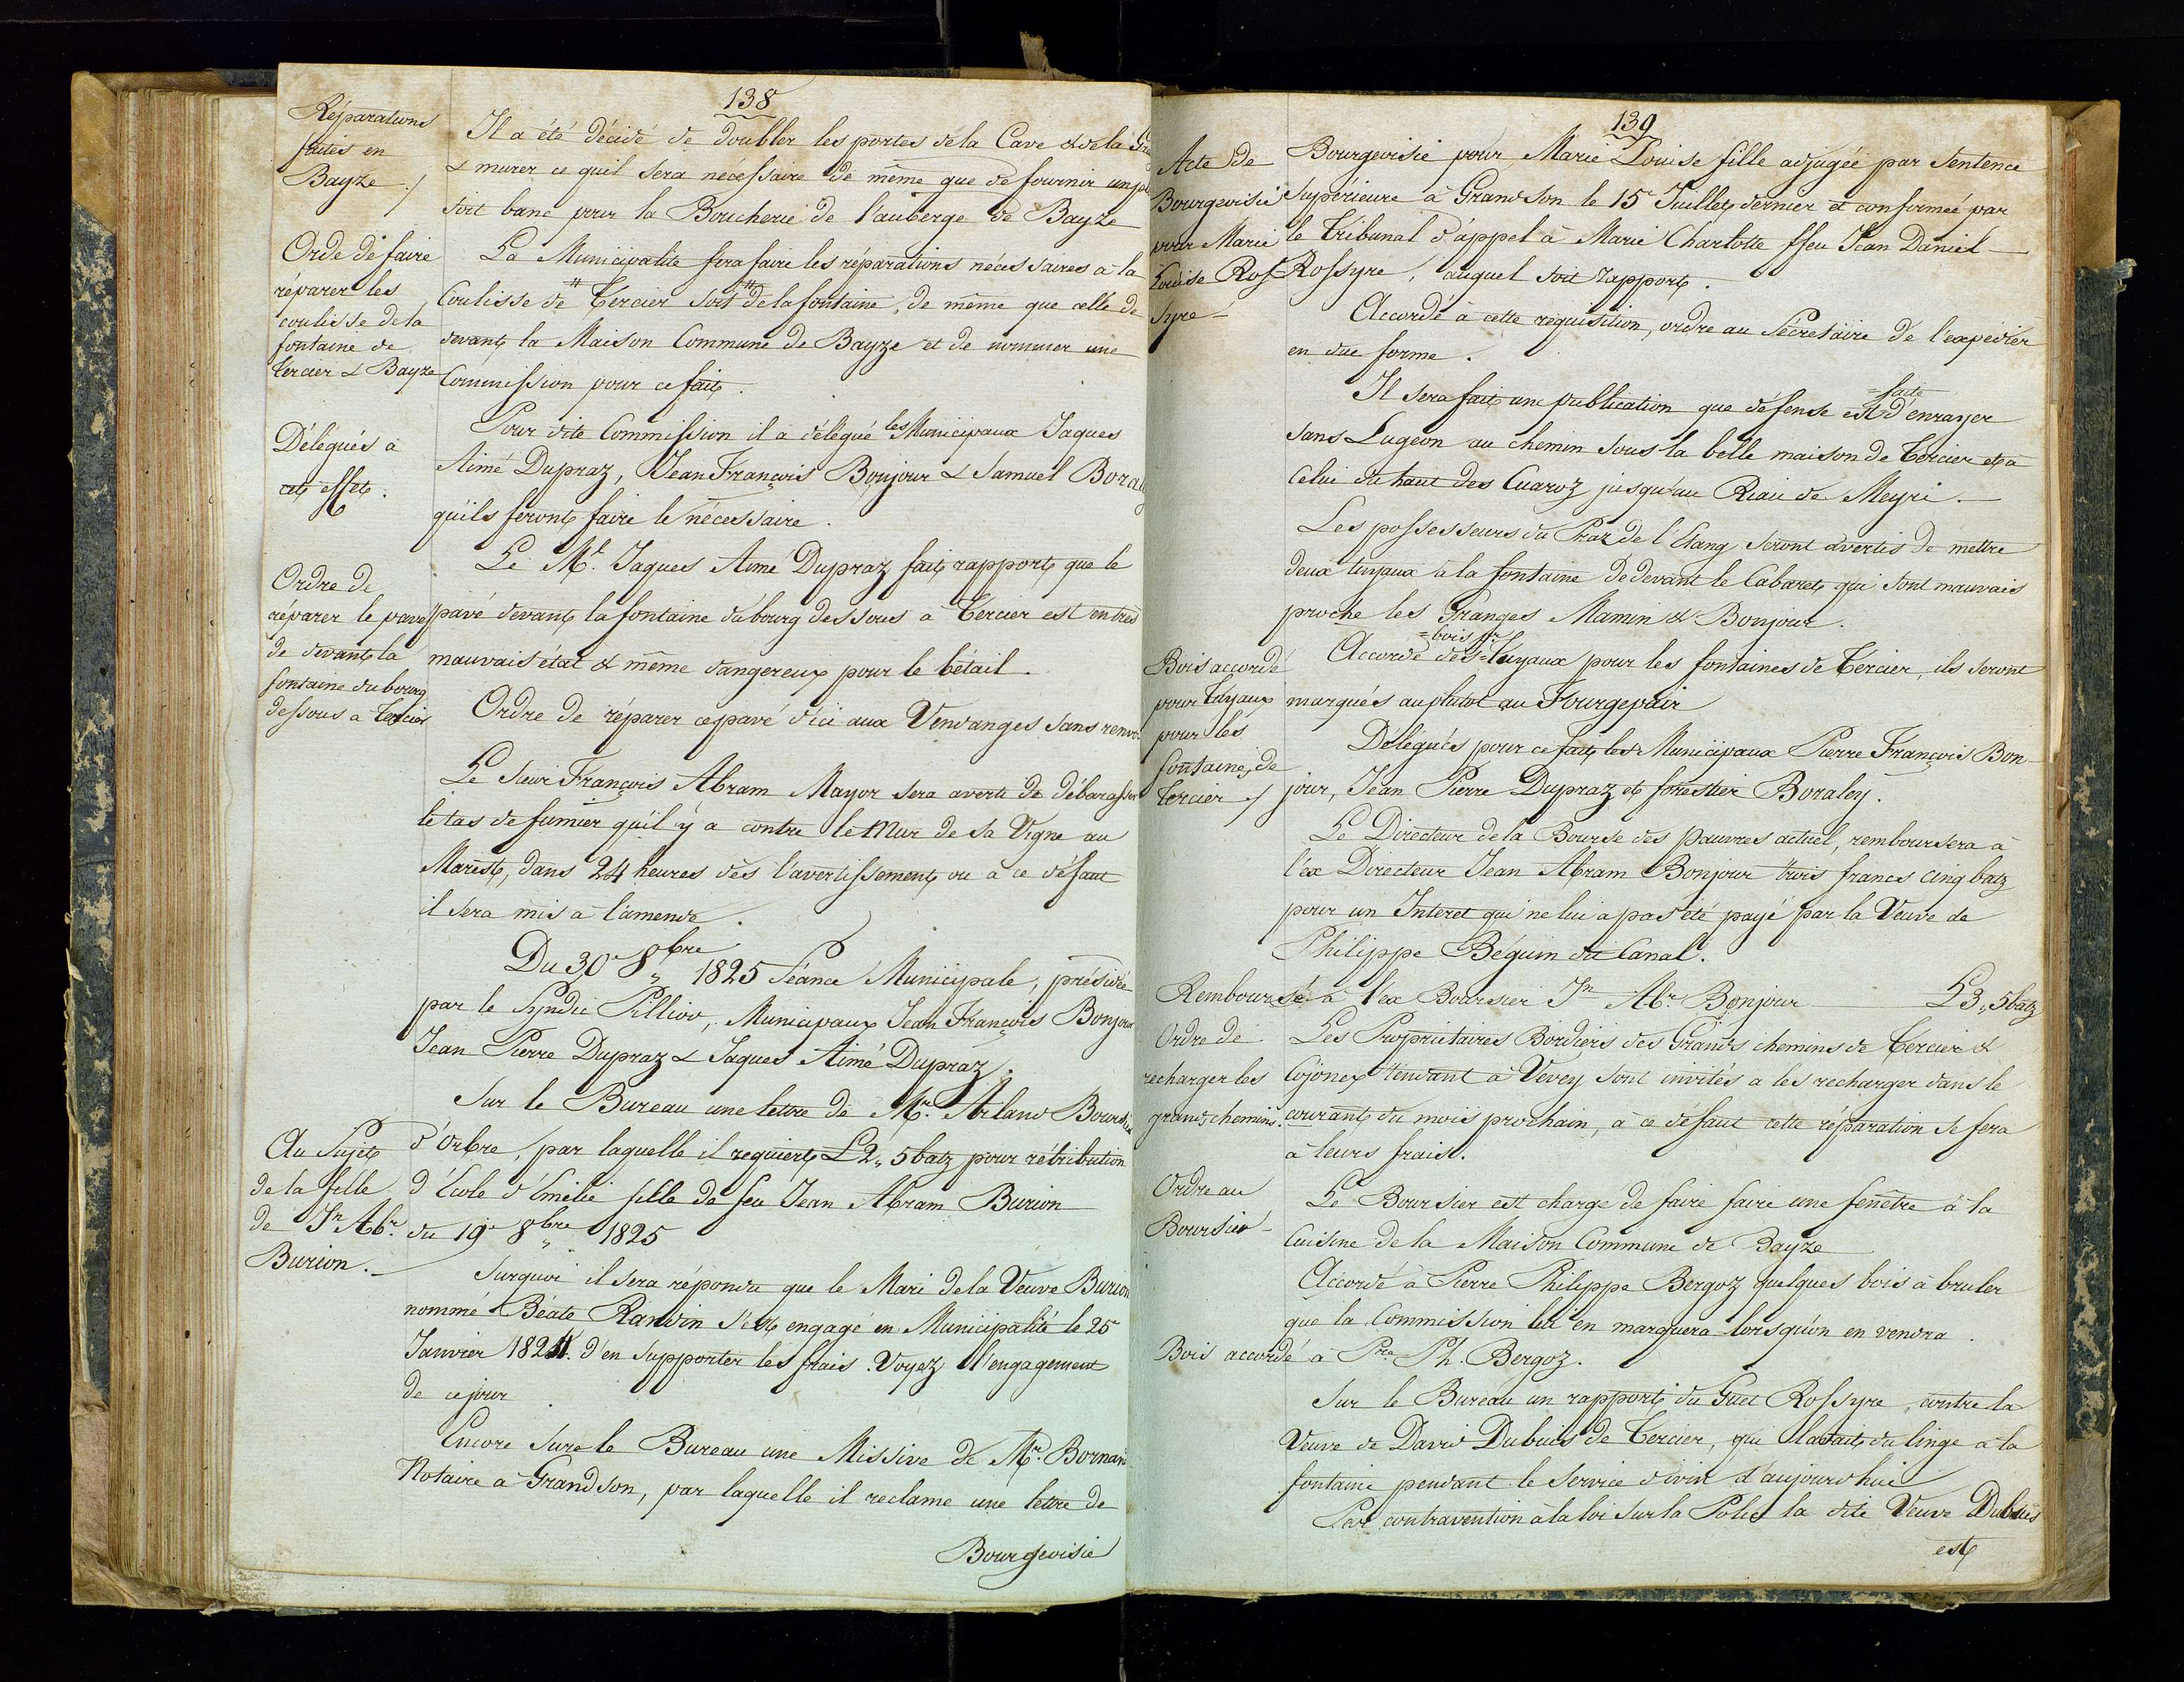 138
Réparations
faites en
Bayze ./
Il a été décidé de doubler les portes de la Cave & de la
& murer ce quil sera nécessaire de même que de fournir un
soit banc pour la Boucherie de l'auberge de Bayze
Orde de faire
réparer les
coulisse de la
fontaine de
Tercier & Bayze
La Municipalité fera faire les réparations nécessaires à la
Coulisse de Tercier soit de la fontaine, de même que celle de
devant la Maison Commune de Bayze et de nommer une
Commission pour ce fait.
Délégués à
cet effet.
Pour dite Commission il a délégué les Municipaux Jaques
Aimé Dupraz, Jean François Bonjour & Samuel
qu'ils feront faire le nécessaire.
Ordre de
réparer le pavé
de devant la
fontaine du bourg
dessous à Tercier
Le Ml. Jaques Aimé Dupraz fait rapport que le
pavé devant la fontaine du bourg dessous à Tercier est en très
mauvais état & même dangereux pour le bétail.
Ordre de réparer ce pavé d'ici aux Vendanges sans
Le Sieur François Abram Mayor sera averti de débarasser
le tas de fumier qu'il y a contre le Mur de sa Vigne au
Marest, dans 24 heures dès l'avertissement ou à ce défaut
il sera mis à l'amende.
Du 30e 8bre 1825 Séance Municipale, présidée
par le Syndic Pilliod, Municipaux Jean François Bonjour
Jean Pierre Dupraz & Jaques Aimé Dupraz.
Au Sujet
de la fille
de Jn Abr.
Burion.
Sur le Bureau une lettre de Mr. Arland Boursier
d'Orbe, par laquelle il requiert L2,, 5batz pour rétribution
d'Ecole d'Emélie fille de feu Jean Abram Burion
du 19e 8bre 1825
Surquoi il sera répondu que le Mari de la Veuve Burion
nommé Béate Randin s'est engagé en Municipalité le 25
Janvier 1824. d'en supporter les frais. Voyez l'engagement
de ce jour.
Encore sur le Bureau une Missive de Mr. Bornand
Notaire à Grandson, par laquelle il reclame une lettre de
Bourgeoisie
139
Acte de
Bourgeoisie
pour Marie
Louise Ros
syre
Bourgeoisie pour Marie Louise fille adjugée par Sentence
Supérieure à Grandson le 15e Juillet dernier et confirmée par
le Tribunal d'appel à Marie Charlotte ffeu Jean Daniel
Rossyre, auquel soit rapport.
Accordé à cette réquisition, ordre au Sécretaire de l'expédier
en due forme.
Il sera fait une publication que défense est =faite d'enrayer
sans Lugeon au chemin sous la belle maison de Tercier et à
celui du haut des Cuaroz jusqu'au Riau de Meyri.
Les possesseurs du Praz de l'Etang seront avertis de mettre
deux tuyaux à la fontaine de devant le Cabaret, qui sont mauvais
proche les Granges Mamin & Bonjour.
Bois accordé
pour Tuyaux
pour les
fontaines de
Tercier ./
Accordé des =bois pr Tuyaux pour les fontaines de Tercier, ils seront
marqués au plutot au Fourgepair
Délégués pour ce fait, les Municipaux Pierre François Bon-
jour, Jean Pierre Dupraz et forestier Boraley.
Le Directeur de la Bourse des pauvres actuel, remboursera à
l'ex Directeur Jean Abram Bonjour trois francs cinq batz
pour un Interet qui ne lui a pas été payé par la Veuve de
Philippe Béguin du Canal.
Remboursé à l'ex Boursier Jn Abr. Bonjour L3,, 5batz
Ordre de
recharger les
grands chemins.
Les Propriétaires Bordiers des Grands chemins de Tercier &
Cojonex tendant à Vevey sont invités à les recharger dans le
courant du mois prochain, à ce défaut cette réparation se fera
à leurs frais.
Ordre au
Boursier
Le Boursier est chargé de faire faire une fenêtre à la
Cuisine de la Maison Commune de Bayze
Accordé à Pierre Philippe Bergoz quelques bois à bruler
que la Commission lui en marquera lorsqu'on en vendra.
Bois accordé à Pre. Ph. Bergoz.
Sur le Bureau un rapport du Guet Rossyre, contre la
Veuve de David Dubuis de Tercier, qui lavait du linge à la
fontaine pendant le service divin d'aujourdhui
Par contravention à la loi sur la Police la dite Veuve Dubuis
est